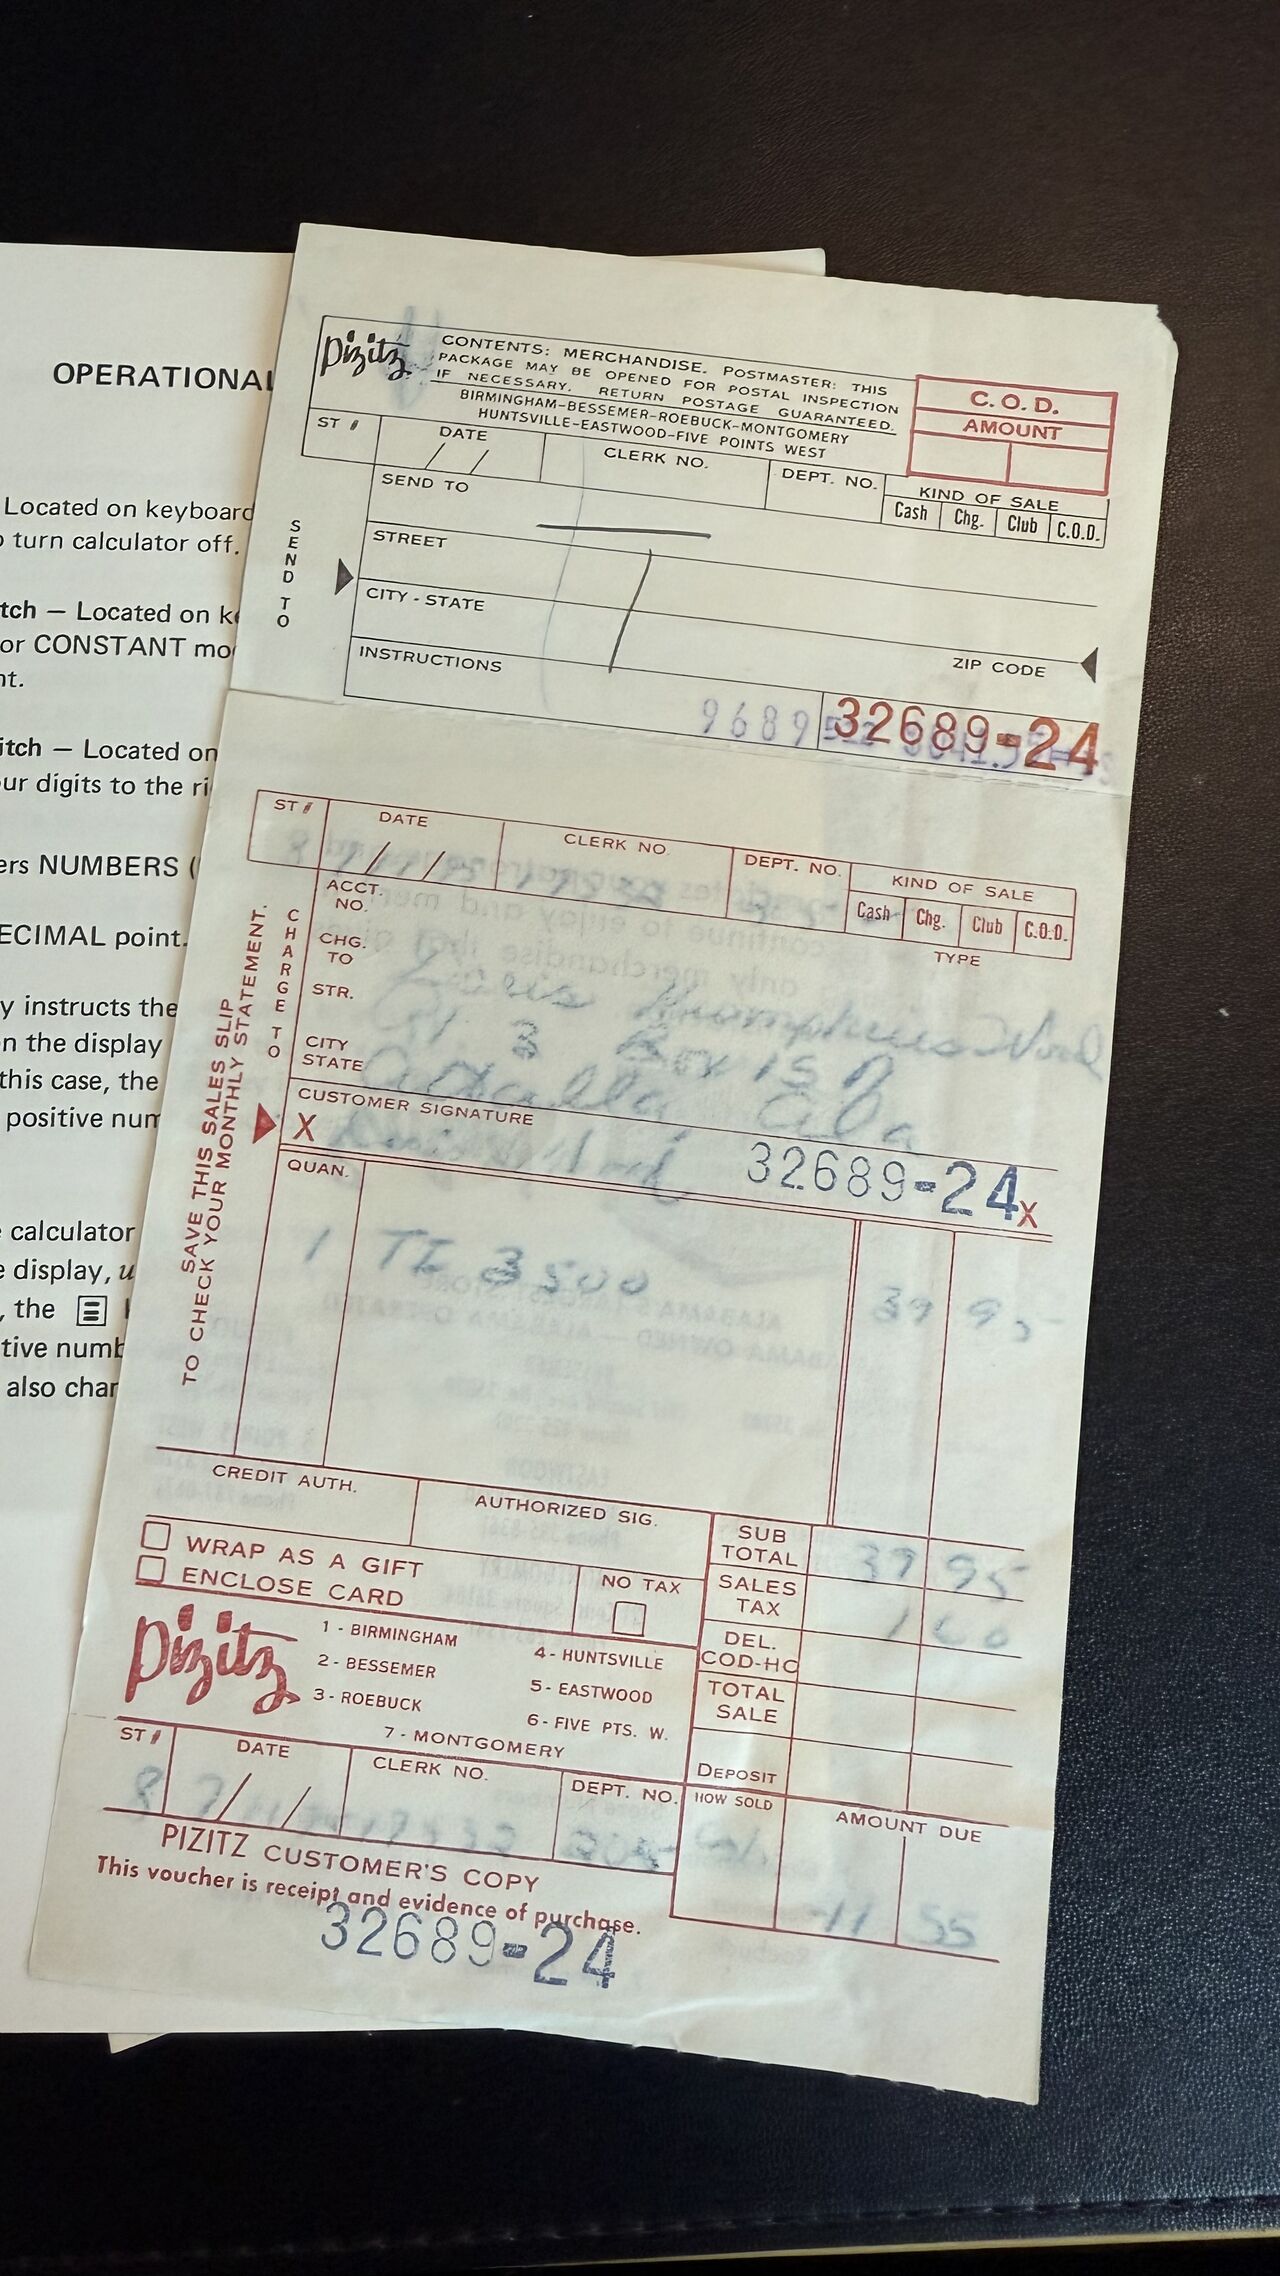 OPERATIONAL
Located on keyboard
turn calculator off.
tch — Located on
or CONSTANT
nt.
itch — Located on
ur digits to the
ers NUMBERS (
ECIMAL point.
y instructs the
n the display
this case, the
positive num
calculator
e display,
, the
tive numb
also
Pizitz
CONTENTS: MERCHANDISE. POSTMASTER: THIS
PACKAGE MAY BE OPENED FOR POSTAL INSPECTION
IF NECESSARY. RETURN POSTAGE GUARANTEED.
BIRMINGHAM-BESSEMER-ROEBUCK-MONTGOMERY
HUNTSVILLE-EASTWOOD-FIVE POINTS WEST
C. O. D.
AMOUNT
ST # DATE CLERK NO. DEPT. NO. KIND OF SALE
/ / Cash Chg. Club C.O.D.
SEND TO
SEND TO
STREET
CITY - STATE
INSTRUCTIONS ZIP CODE
9689
32689-24
ST # DATE CLERK NO. DEPT. NO. KIND OF SALE
/ / Cash Chg. Club C.O.D.
TYPE
SAVE THIS SALES SLIP
TO CHECK YOUR MONTHLY STATEMENT.
CHARGE TO
ACCT. NO.
CHG. TO
STR.
3 Box 15
CITY STATE
CUSTOMER SIGNATURE
X 32689-24 X
QUAN.
1 TI 3500 39 95
CREDIT AUTH. AUTHORIZED SIG.
SUB TOTAL 39 95
WRAP AS A GIFT
ENCLOSE CARD
NO TAX
SALES TAX 1 60
DEL. COD-HC
TOTAL SALE
DEPOSIT
Pizitz
1 - BIRMINGHAM
2 - BESSEMER
3 - ROEBUCK
4 - HUNTSVILLE
5 - EASTWOOD
6 - FIVE PTS. W.
7 - MONTGOMERY
ST # DATE CLERK NO. DEPT. NO. HOW SOLD AMOUNT DUE
8 / /
55
PIZITZ CUSTOMER'S COPY
This voucher is receipt and evidence of purchase.
32689-24